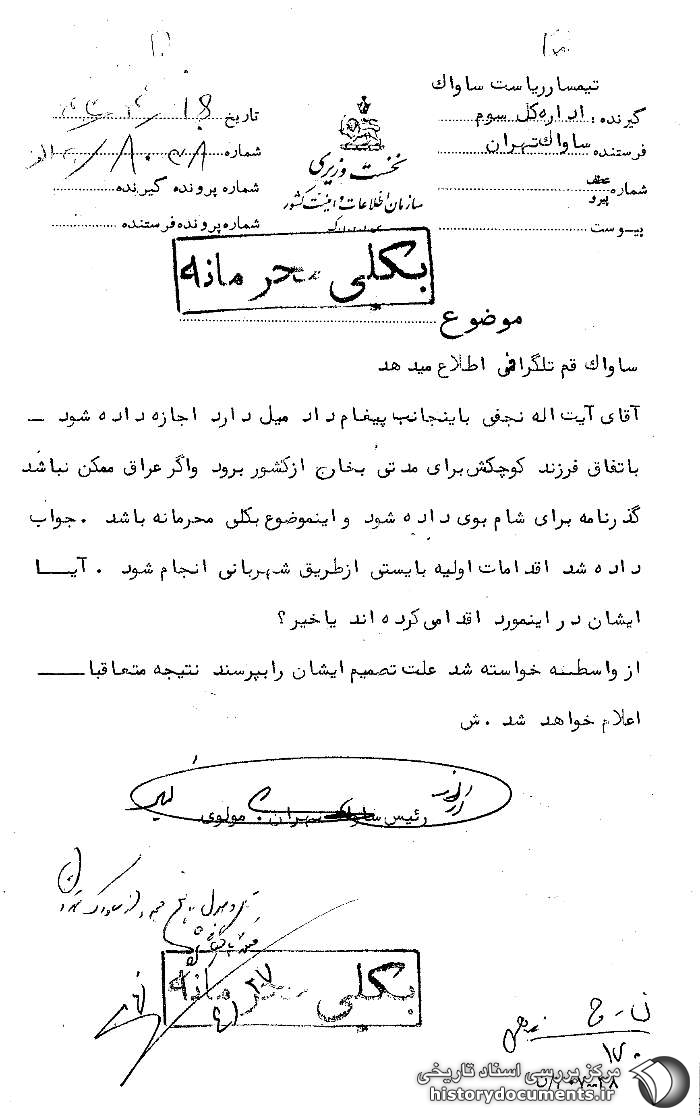 تیمسار ریاست ساواک
گیرنده : اداره کل سوم
فرستنده ساواک تهران
شماره عطف پیرو
پیوست
نخست وزیری
سازمان اطلاعات و امنیت کشور
تاریخ
شماره
شماره پرونده گیرنده
شماره پرونده فرستنده
بکلی محرمانه
موضوع
ساواک قم تلگرافی اطلاع میدهد
آقای آیت اله نجفی باینجانب پیغام داد میل دارد اجازه داده شود –
باتفاق فرزند کوچکش برای مدتی بخارج ازکشور برود واگر عراق ممکن نباشد
گذرنامه برای شام بوی داده شود و اینموضوع بکلی محرمانه باشد . جواب
داده شد اقدامات اولیه بایستی ازطریق شهربانی انجام شود . آیا
ایشان در اینمورد اقدامی کرده اند یاخیر ؟
از واسطه خواسته شد علت تصمیم ایشان رابپرسند نتیجه متعاقبا
اعلام خواهد شد . ش
رئیس ساواک تهران . مولوی
بکلی محرمانه
مرکز بررسی اسناد تاریخی
historydocuments.ir